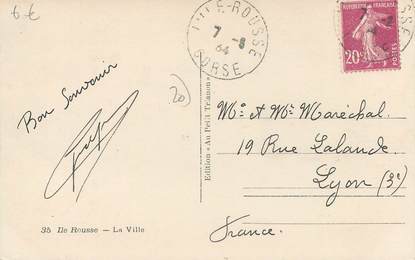 6 €
ILE-ROUSSE
7 -8
34
CORSE
REPUBLIQUE FRANÇAISE
20c
POSTES
20
Bon Souvenir
Edition « Au Petit Trianon »
Mr et Me Maréchal.
19 Rue Lalande.
Lyon (3e)
France.
35 Ile Rousse — La Ville